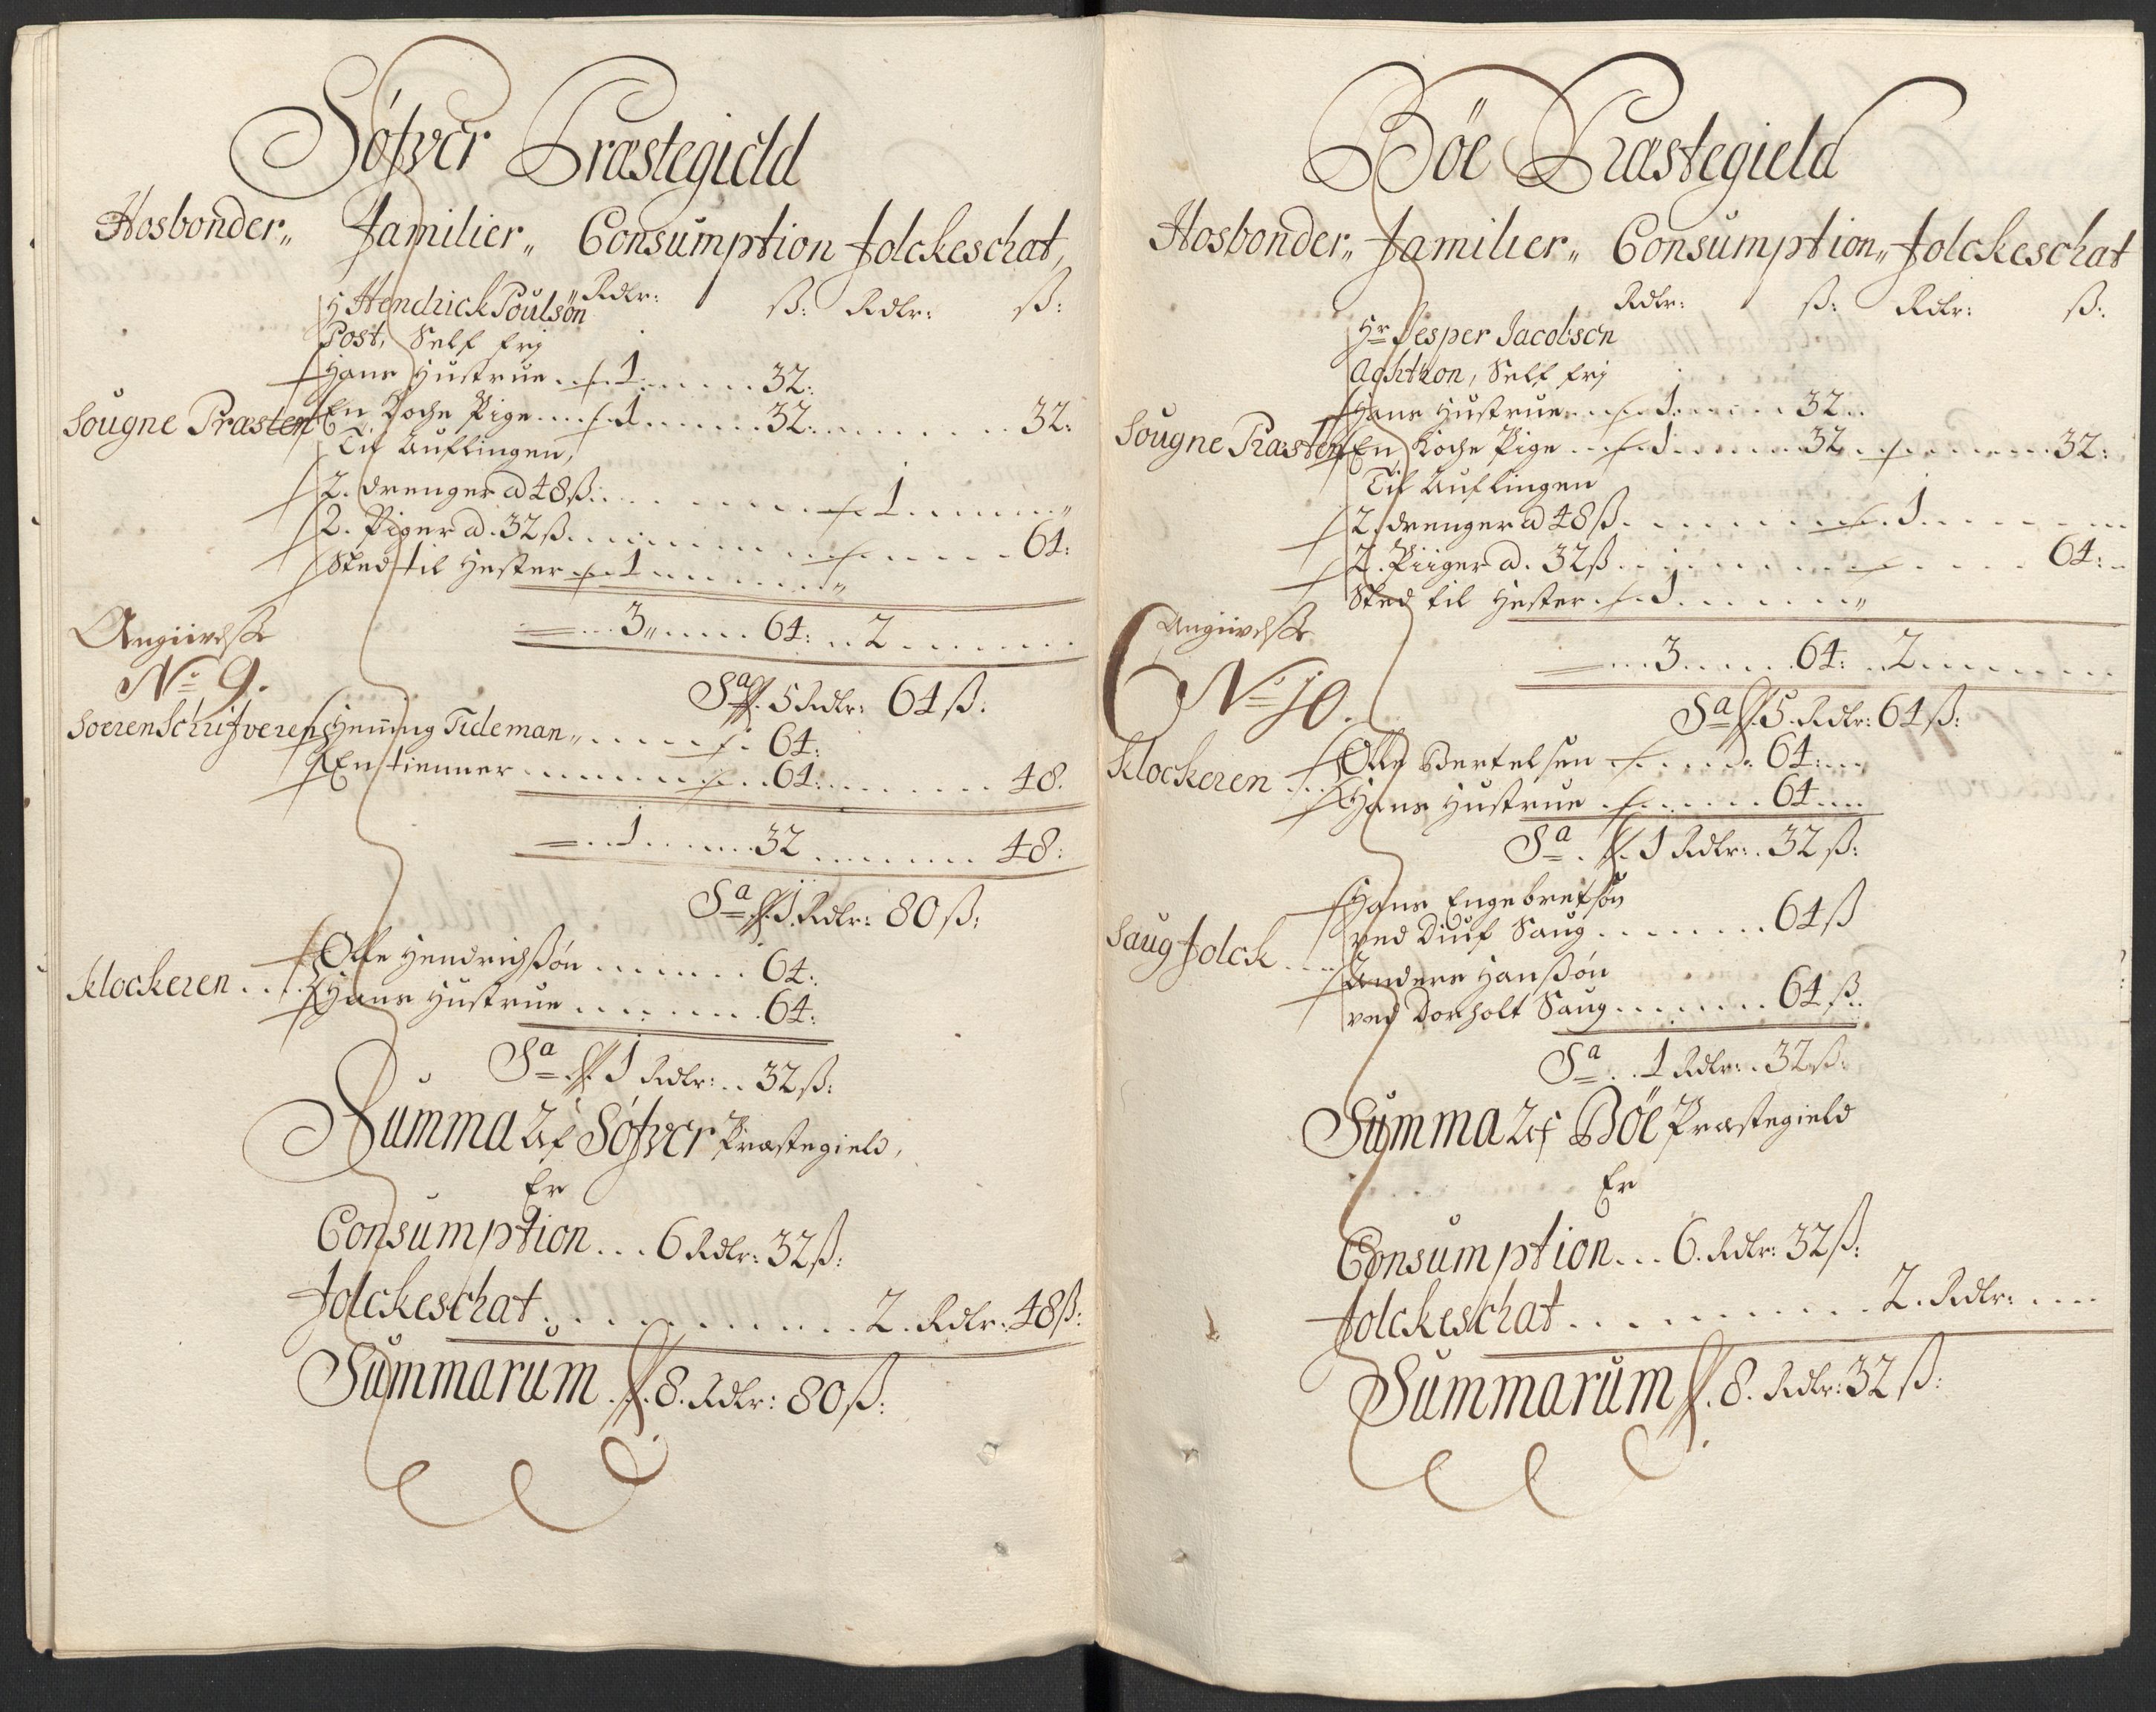 Søfver Præstegield
Hosbonder„ Familier„ Consumption Folckeschat,
Rdlr: ß: Rdlr: ß:
H Hendrick Poulsøn
Post, Self frj
Hans Hustrue . . 1 . . . . . . 32:
Sougne Præsten En Koche Pige . . . . 1 . . . . . . 32: . . . . . . . . 32:
Til Auflingen,
2. drenger ad 48 ß: . . . . . . . . . . 1 . . . . . . „
2. Piger ad. 32 ß . . . . . . . . . . . . . . . . 64:
Sted til Hester . . 1 . . . . . . . „
. . . 3 „ . . . . . 64: . . 2 . . . . . . . .
Angiivelse
No 9.
Sa 5 Rdlr: 64 ß:
Sorenschrifveren Heming Tideman „ . . . . . . 64:
En tienner . . . . . . . . . . 64: . . . . . . . . 48.
. . 1 . . . . . . 32 . . . . . . . . 48:
Sa 1 Rdlr: 80 ß:
Klockeren . . . Olle Hendrichßøn . . . . . . . 64:
Hans Hustrue . . . . . . . . 64:
Sa 1 Rdlr: . . 32 ß:
Summa Af Søfver Præstegield,
Er
Consumption . . . 6 Rdlr: 32 ß:
Folckeschat . . . . . . . . . . . 2. Rdlr: 48 ß:
Summarum . 8. Rdlr: 80 ß:
Böe Præstegield
Hosbonder„ Familier„ Consumption„ Folckeschat
Rdlr: ß: Rdlr: ß:
Hr Jesper Jacobsen
Achton, Self frj
Hans Hustrue . . . . 1 . . . . . . 32 . .
Sougne Præsten En Koche Pige . . . 1 . . . . . . . 32 . . . . . . . . . 32:
Til Auflingen
2. drenger ad 48 ß . . . . . . . . . . 1 . . . . . . .
2. Piiger ad. 32 ß . . . . . . . . . . . . . . . . 64:
Sted til Hester . . 1 . . . . . . . „
. . . 3 . . . . . . 64: . . 2 . . . . . . . .
Angiivelse
No 10.
Sa 5. Rdlr: 64 ß:
Klockeren . . . Olle Bertelsen . . . . . 64: . . .
Hans Hustrue . . . . . . . 64 . . .
Sa . 1 Rdlr: . 32 ß:
Hans Engebretsøn
ved Diuf Saug . . . . . . . . 64 ß
Saug Folck . . . Anders Hanßøn
ved Dorholt Saug . . . . . . . 64 ß.
Sa . . 1 Rdlr: . 32 ß:
Summa Af Böe Præstegield
Er
Consumption . . . 6. Rdlr: 32 ß:
Folckeschat . . . . . . . . . . . 2. Rdlr: . . . .
Summarum . 8. Rdlr: 32 ß: